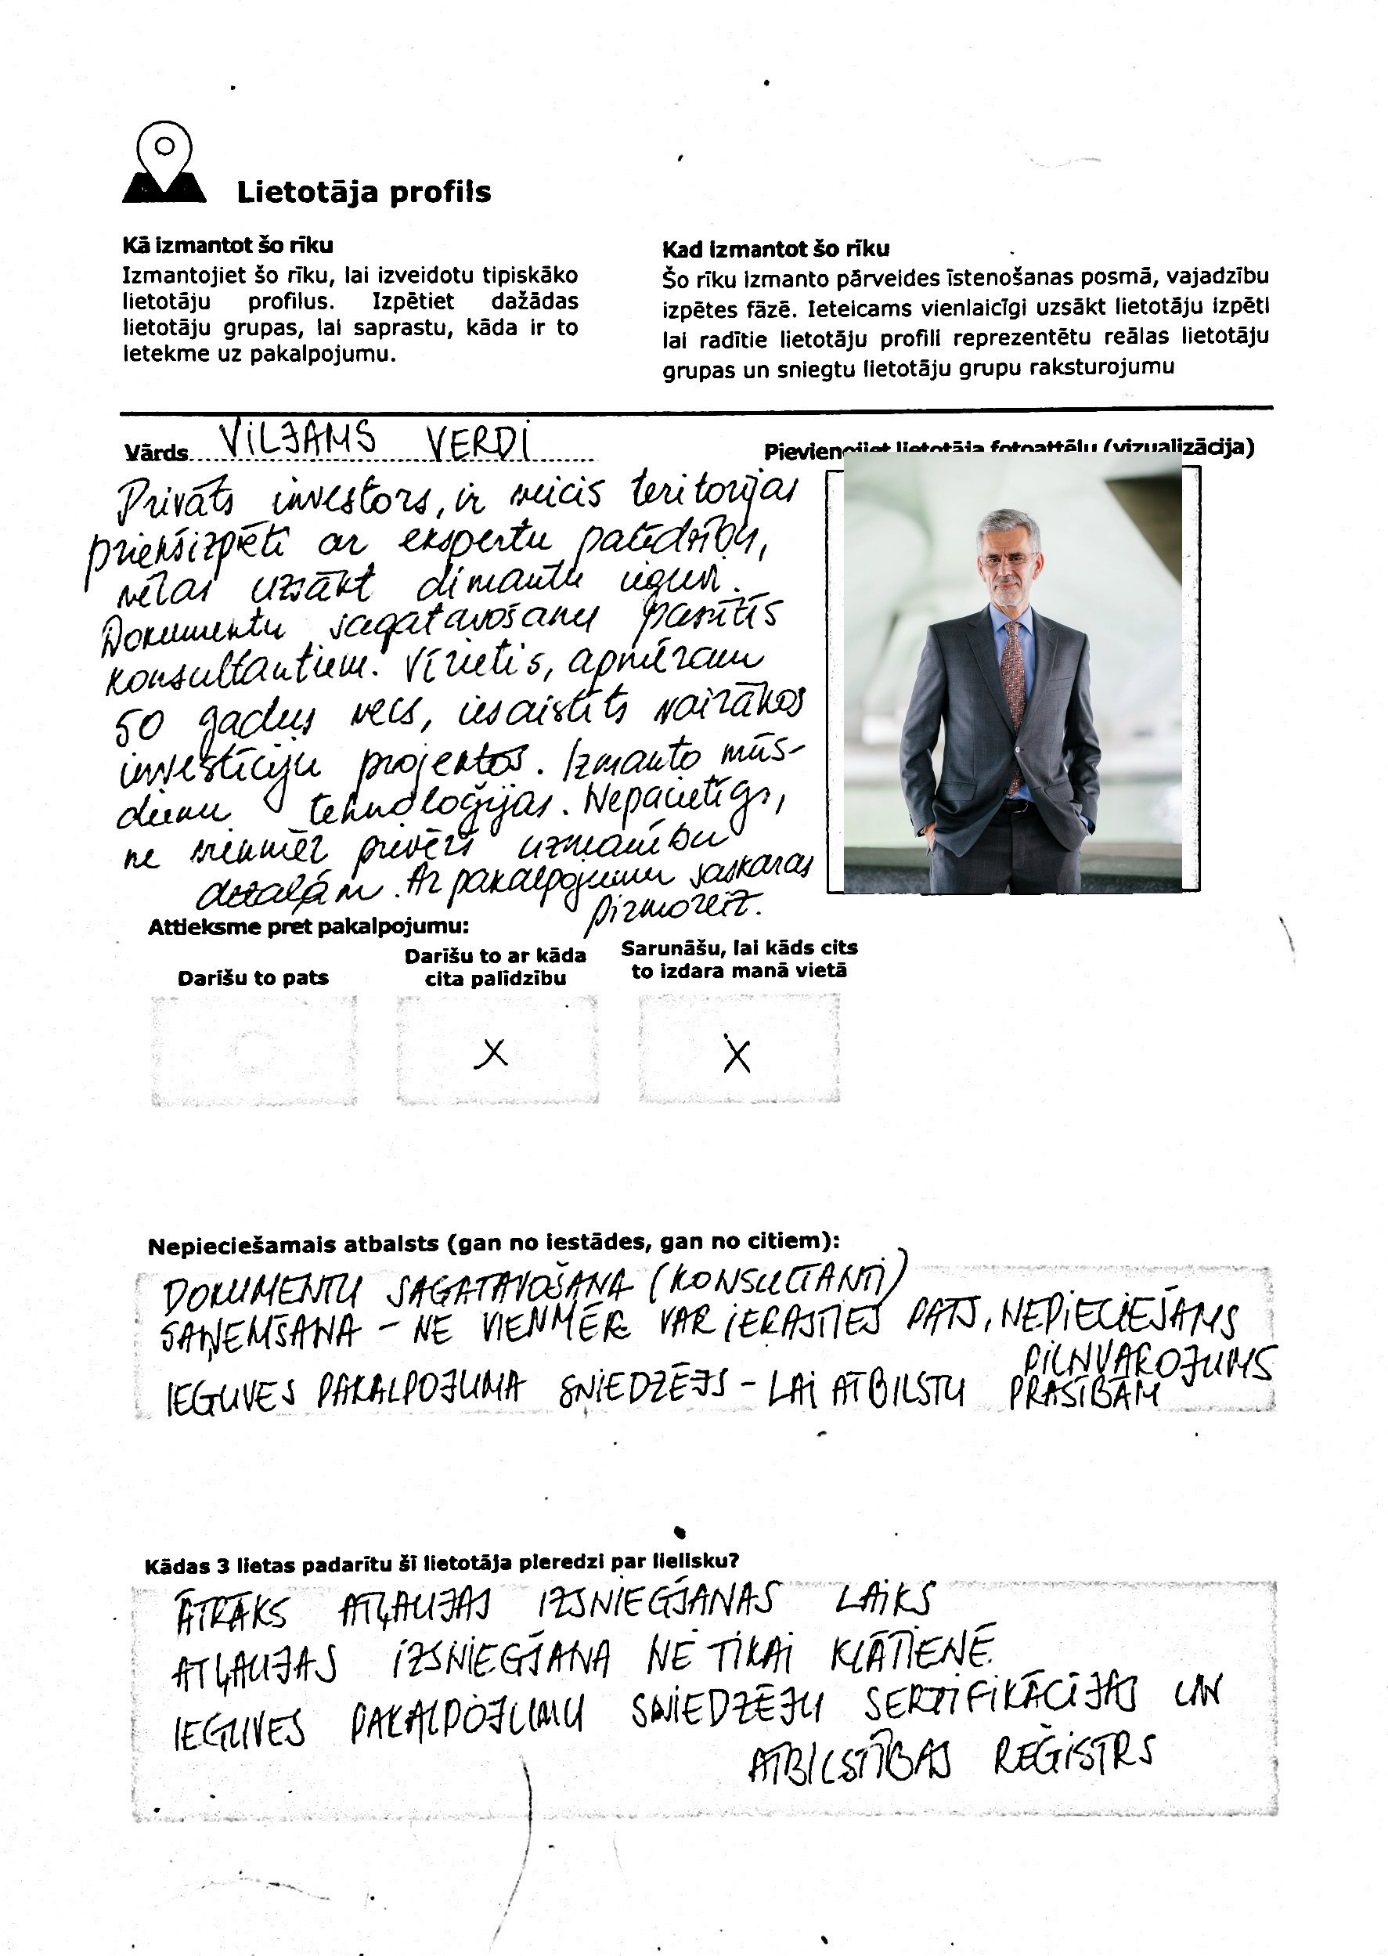 Lietotāja profils
Kā izmantot šo rīku
Izmantojiet šo rīku, lai izveidotu tipiskāko
lietotāju profilus. Izpētiet dažādas
lietotāju grupas, lai saprastu, kāda ir to
ietekme uz pakalpojumu.
Kad izmantot šo rīku
Šo rīku izmanto pārveides īstenošanas posmā, vajadzību
izpētes fāzē. Ieteicams vienlaicīgi uzsākt lietotāju izpēti
lai radītie lietotāju profili reprezentētu reālas lietotāju
grupas un sniegtu lietotāju grupu raksturojumu
Vārds VILJAMS VERDI
Pievienojiet lietotāja fotoattēlu (vizualizācija)
Privāts investors, ir veicis teritorijas
priekšizpēti ar ekspertu palīdzību,
vēlas uzsākt dimantu ieguvi.
Dokumentu sagatavošanu pasūtīs
konsultantiem. Vīrietis, apmēram
50 gadus vecs, iesaistīts vairākos
investīciju projektos. Izmanto mūs-
dienu tehnoloģijas. Nepacietīgs,
ne vienmēr pievērš uzmanību
detaļām. Ar pakalpojumu saskaras
pirmoreiz.
Attieksme pret pakalpojumu:
Darīšu to pats
Darīšu to ar kāda
cita palīdzību
Sarunāšu, lai kāds cits
to izdara manā vietā
X X
Nepieciešamais atbalsts (gan no iestādes, gan no citiem):
DOKUMENTU SAGATAVOŠANA (KONSULTANTI)
SAŅEMŠANA - NE VIENMĒR VAR IERASTIES PATS, NEPIECIEŠAMS
PILNVAROJUMS
IEGUVES PAKALPOJUMA SNIEDZĒJS - LAI ATBILSTU PRASĪBĀM
Kādas 3 lietas padarītu šī lietotāja pieredzi par lielisku?
ĀTRĀKS ATĻAUJAS IZSNIEGŠANAS LAIKS
ATĻAUJAS IZSNIEGŠANA NE TIKAI KLĀTIENĒ
IEGUVES PAKALPOJUMU SNIEDZĒJU SERTIFIKĀCIJAS UN
ATBILSTĪBAS REĢISTRS